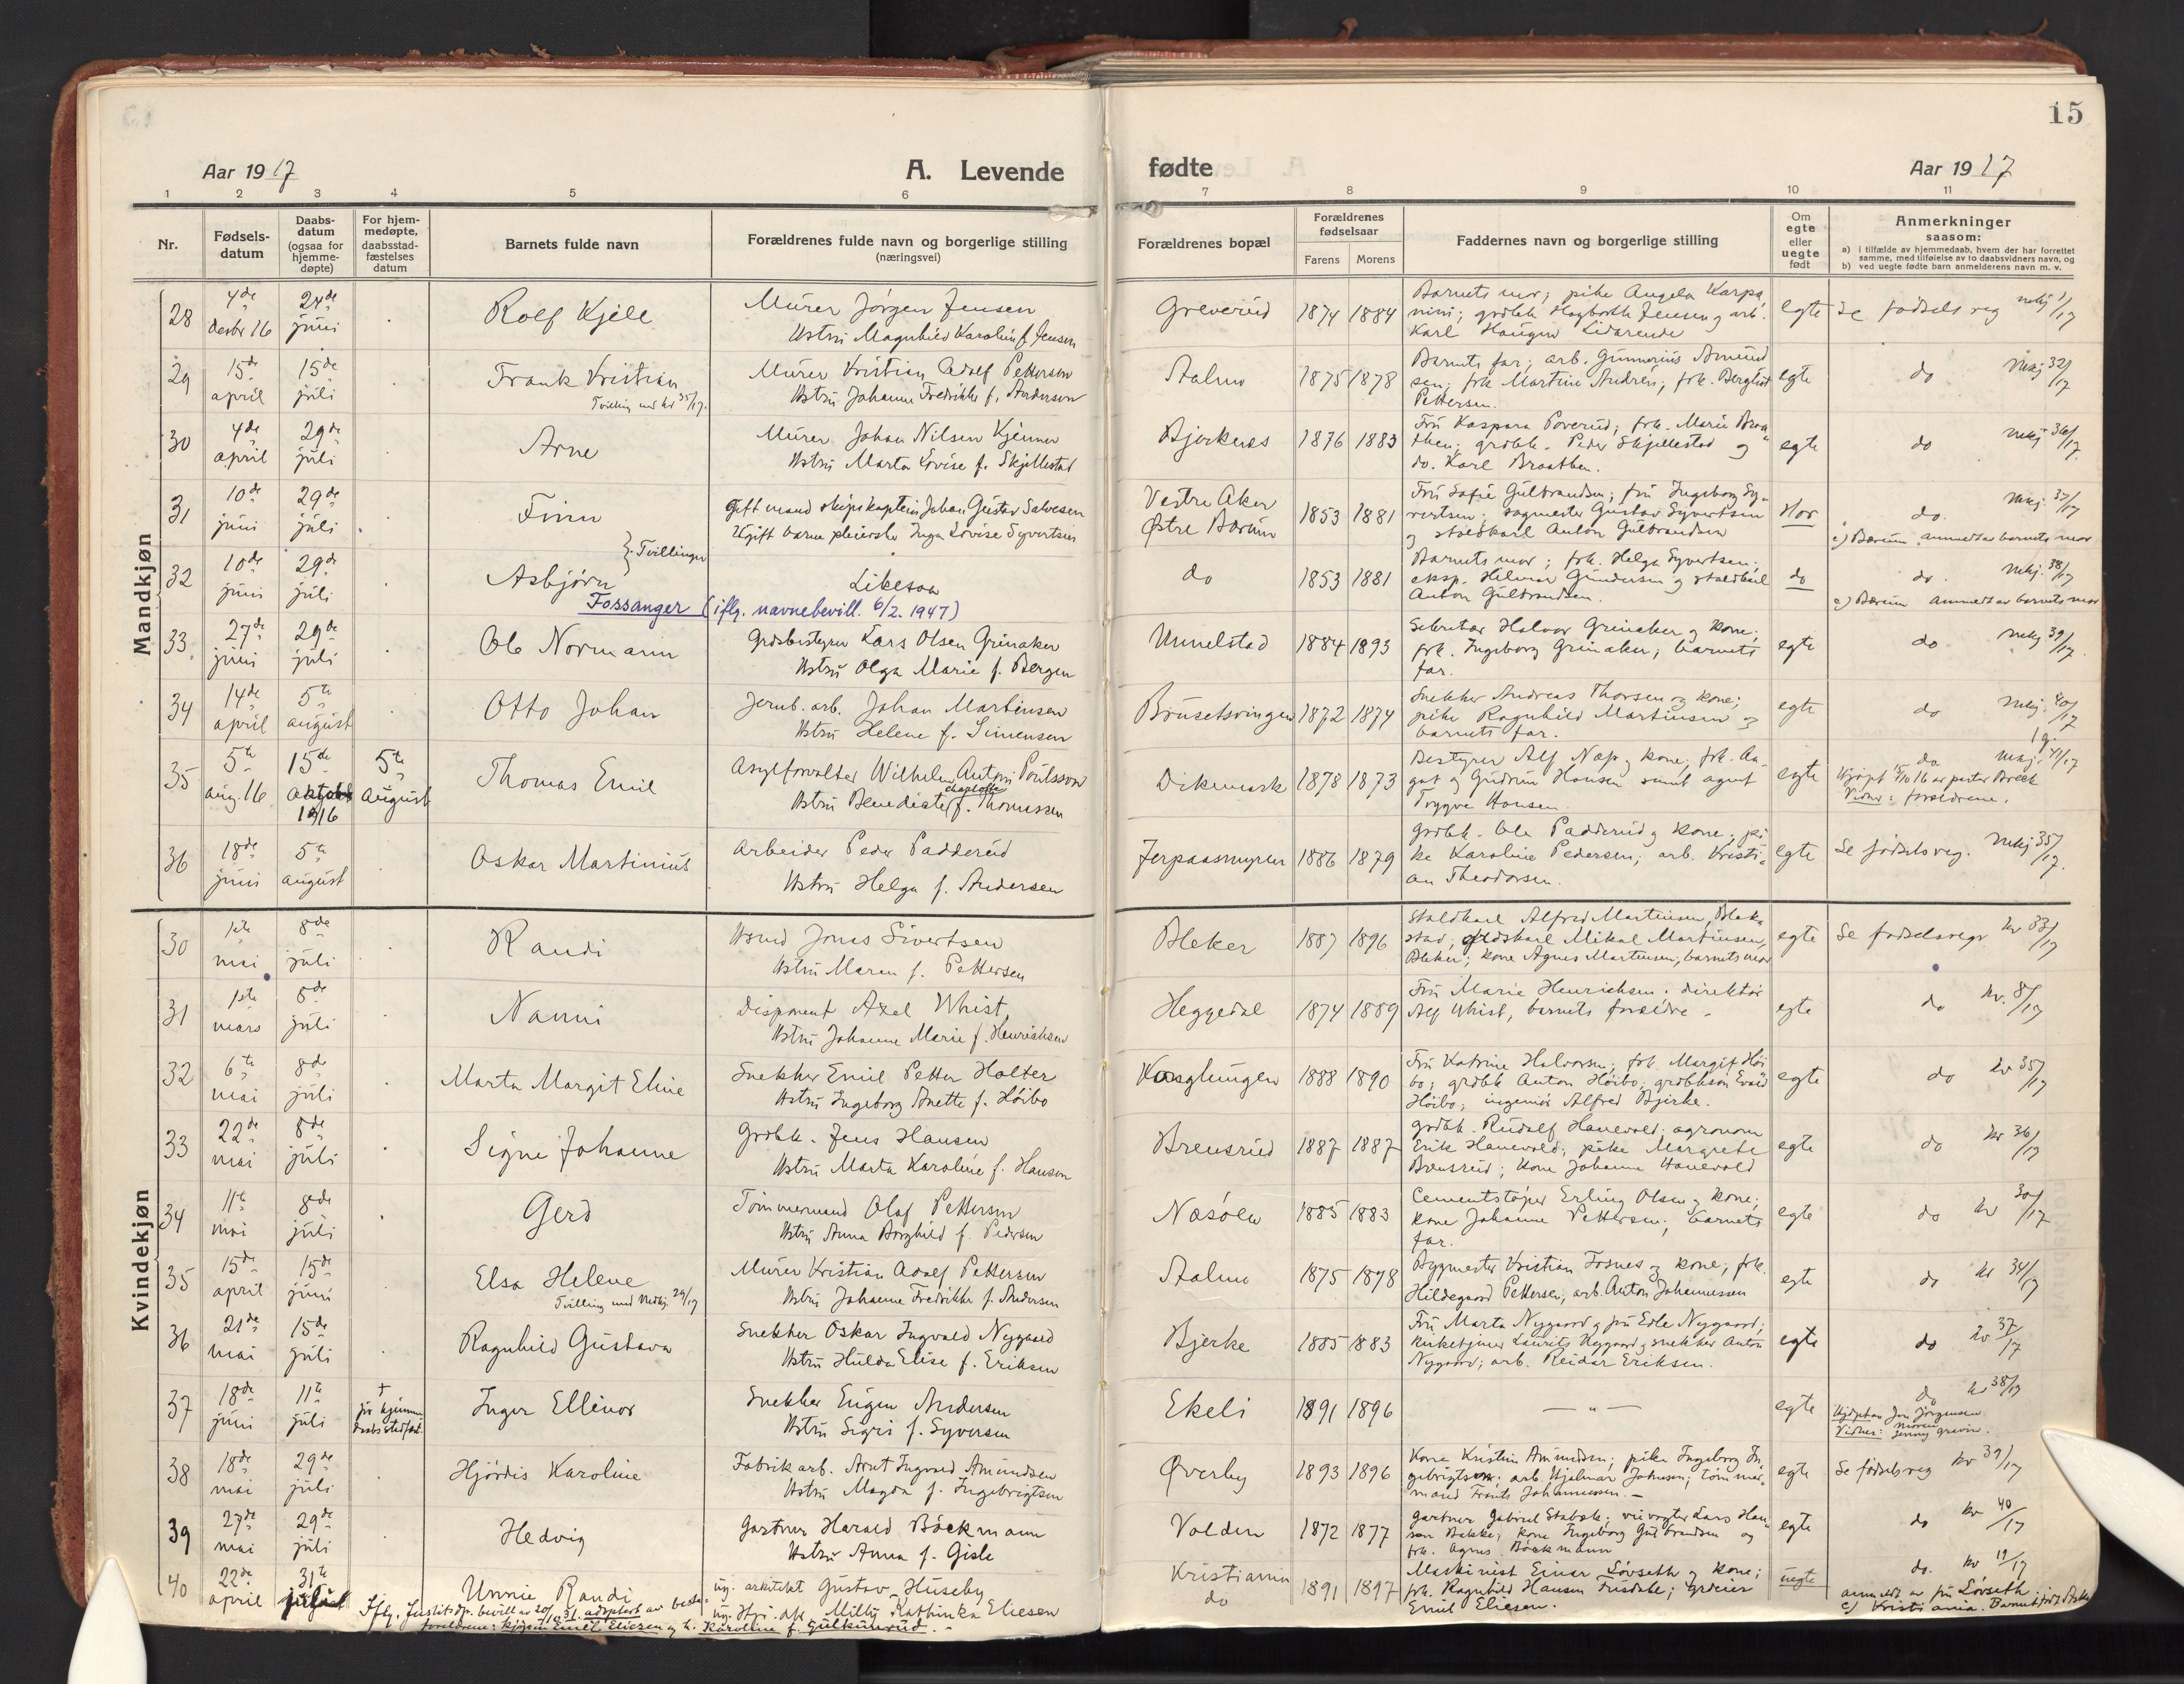 15
Aar 1917
A. Levende
fødte
Aar 1917
1 2 3 4 5 6 7 8 9 10 11
Nr.
Fødsels-
datum
Daabs-
datum
(ogsaa for
hjemme-
døpte)
For hjem-
medøpte,
daabsstad-
fæstelses
datum
Barnets fulde navn
Forældrenes fulde navn og borgerlige stilling
(næringsvei)
Forældrenes bopæl
Forældrenes
fødselsaar
Farens Morens
Faddernes navn og borgerlige stilling
Om
egte
eller
uegte
født
Anmerkninger
saasom:
a) i tilfælde av hjemmedaab, hvem der har forrettet
samme, med tilføielse av to daabsvidners navn, og
b) ved uegte fødte barn anmelderens navn m. v.
Mandkjøn
28 4de desbr 16 24de juni Rolf Kjell
Murer Jørgen Jensen
Hstru Magnhild Karoline f. Jensen
Greverud 1874 1884
Barnets mor; pike Angela
Karl Haugen
egte Se fødselsreg mkj 1/17
29 15de april 15de juli Frank Kristian
Tvilling med kv 35/17.
Murer Kristian Adolf Pettersen
Hstru Johanne Fredrikke f. Andersen
1875 1878
Barnets far; arb. Gunnerius Amund
sen; frk. Martine Andrén; frk. Bergliot
Pettersen.
egte do Mkj 32/17
30 4de april 29de juli Arne
Murer Johan Nilsen Kjenner
Hstru Marta Lovise f. Skjellestad
Bjerknes 1876 1883
Fru Kaspara Poverud; frk. Marie Braa
then; grdbk. Peder Skjellestad og
do. Karl Braathen.
egte do mkj 36/17
31 10de juni 29de juli Finn
Gift mand skipskaptein Johan Gustav Salvesen
Ugift barnepleierske Inga Lovise Syvertsen
Vestre Aker
Østre Bærum
1853 1881
Fru Sofie Gulbrandsen; fru Ingeborg Sy-
vertsen; sagmester Gustav Syvertsen
og staldkarl Anton Gulbrandsen
Hor do. mkj. 37/17
c) Bærum anmeldt av barnets mor
} Tvillinger
32 10de juni 29de juli Asbjørn
Likesaa
Fossanger (iflg. navnebevill. 6/2. 1947)
do 1853 1881
Barnets mor; frk. Helga Syvertsen;
eksp. Helmer Gundersen og staldkarl
Anton Gulbrandsen.
do do. mkj. 38/17
c) Bærum anmeldt av barnets mor
33 27de juni 29de juli Ole Normann
Grdsbestyrer Lars Olsen Grinaker
Hstru Olga Marie f. Bergen
Unnelstad 1884 1893
Sekretær Halvor Grinaker og kone;
frk. Ingeborg Grinaker; barnets
far.
egte do mkj 39/17
34 14de april 5te august Otto Johan
Jernb. arb. Johan Martinsen
Hstru Helene f. Simensen
Brusetsvingen 1872 1874
Snekker Andreas Thorsen og kone;
pike Ragnhild Martinsen og
barnets far.
egte do mkj. 40/17
35 5te aug. 16 15de oktober 1916 5te august Thomas Emil
Asylforvalter Wilhelm Anton Poulsson
Hstru Benedicte Charlotte f. Thomessen
Dikemark 1878 1873
Bestyrer Alf Næp og kone, frk. Aa-
got og Gudrun Hansen samt agent
Trygve Hansen.
egte do mkj. 41/17
Hjdpt 15/10 16 av pastor Breck
Vidner: forældrene.
36 18de juni 5te august Oskar Martinius
Arbeider Peder Padderud
Hstru Helga f. Andersen
Jerpaasmyren 1886 1879
Grdbk. Ole Padderud og kone; pi-
ke Karoline Pedersen; arb. Kristi-
an Theodorsen.
egte Se fødselsreg. mkj 35/17.
Kvindekjøn
30 1ste mai 8de juli Randi
Jonas Sivertsen
Hstru Maren f. Pettersen
Bleker 1887 1896
Staldkarl Alfred Martinsen, Blak-
stad; grdskarl Mikal Martinsen,
Bleker; kone Agnes Martinsen; barnets mor
egte Se fødselsregr kv 33/17
31 1ste mars 8de juli Nanni
Disponent Axel Whist,
Hstru Johanne Marie f. Henrichsen
Heggedal 1874 1889
Fru Marie Henrichsen; direktør
Alf Whist, barnets forældre.
egte do kv. 8/17
32 6te mai 8de juli Marta Margit Eline
Snekker Emil Petter Holter
Hstru Ingeborg Anette f. Høibo
Vasglungen 1888 1890
Fru Katrine Halvorsen; frk Margit Høi
bo; grdbk Anton Høibo; grdbksøn Evald
Høibo; ingeniør Alfred Bjerke.
egte do kv 35/17
33 22de mai 8de juli Signe Johanne
Grdbk. Jens Hansen
Hstru Marta Karoline f. Hansen
Brensrud 1887 1887
Grdbk. Rudolf Hanevold; agronom
Erik Hanevold; pike Margrete
Brensrud; kone Johanne Hanevold
egte do kv 36/17
34 11te mai 8de juli Gerd
Tømmermand Olaf Pettersen
Hstru Anna Borghild f. Pedersen
Næsøen 1885 1883
Cementstøper Erling Olsen og kone;
kone Johanne Pettersen; barnets
far.
egte do kv 30/17
35 15de april 15de juni Elsa Helene
Tvilling med Mkj. 29/17
Murer Kristian Adolf Pettersen
Hstru Johanne Fredrikke f. Andersen
1875 1878
Bygmester Kristian Fosnes og kone; frk.
Hildegaard Pettersen, arb. Anton Johannessen
egte do kv 34/17
36 21de mai 15de juli Ragnhild Gustava
Snekker Oskar Ingvald Nygaard
Hstru Hulda Elise f. Eriksen
Bjerke 1885 1883
Fru Marta Nygaard og fru Edle Nygaard;
kirketjener Laurits Nygaard og snekker Anton
Nygaard; arb. Reidar Eriksen.
egte do kv 37/17
37 18de juni 11te juli † før hjemme
daabs stadfæst. Inger Ellinor
Snekker Eugen Andersen
Hstru Sigrid f. Syversen
Ekeli 1891 1896
— " —
egte do kv 38/17
Hjdpt av Fru Jørgensen
Vidner: moren
38 18de mai 29de juli Hjördis Karoline
Fabrikarb. Arnt Ingvald Amundsen
Hstru Magda f. Ingebrigtsen
Øverby 1893 1896
Kone Kristine Amundsen; pike Ingeborg In-
gebrigtsen; arb. Hjalmar Johnsen; tømmer-
mand Frants Johannessen. —
egte Se fødselsreg kv 39/17
39 27de mai 29de juli Hedvig
Gartner Harald Böckmann
Hstru Anna f. Gisle
Volden 1872 1877
Gartner Gabriel Stabæk; Lars Han-
sen Bakke; kone Ingeborg Gulbrandsen og
frk. Agnes Böckmann
egte do kv 40/17
40 22de april 31te juli Unnie Randi
ug. arkitekt Gustav Huseby
ug. Milly Kathinka Eliesen
Kristiania
do
1891 1897
Maskinist Einar Løvseth og kone;
frk. Ragnhild Hansen
Emil Eliesen.
uegte do. kv 19/17
anmeldt av fru Løvseth.
c) Kristiania. Barnet født i Asker
Iflg. Justitsdp. bevill av 20/10 31. adoptert av beste-
foreldrene: kjøpm Emil Eliesen og h. Karoline f. Gulkunrud. —